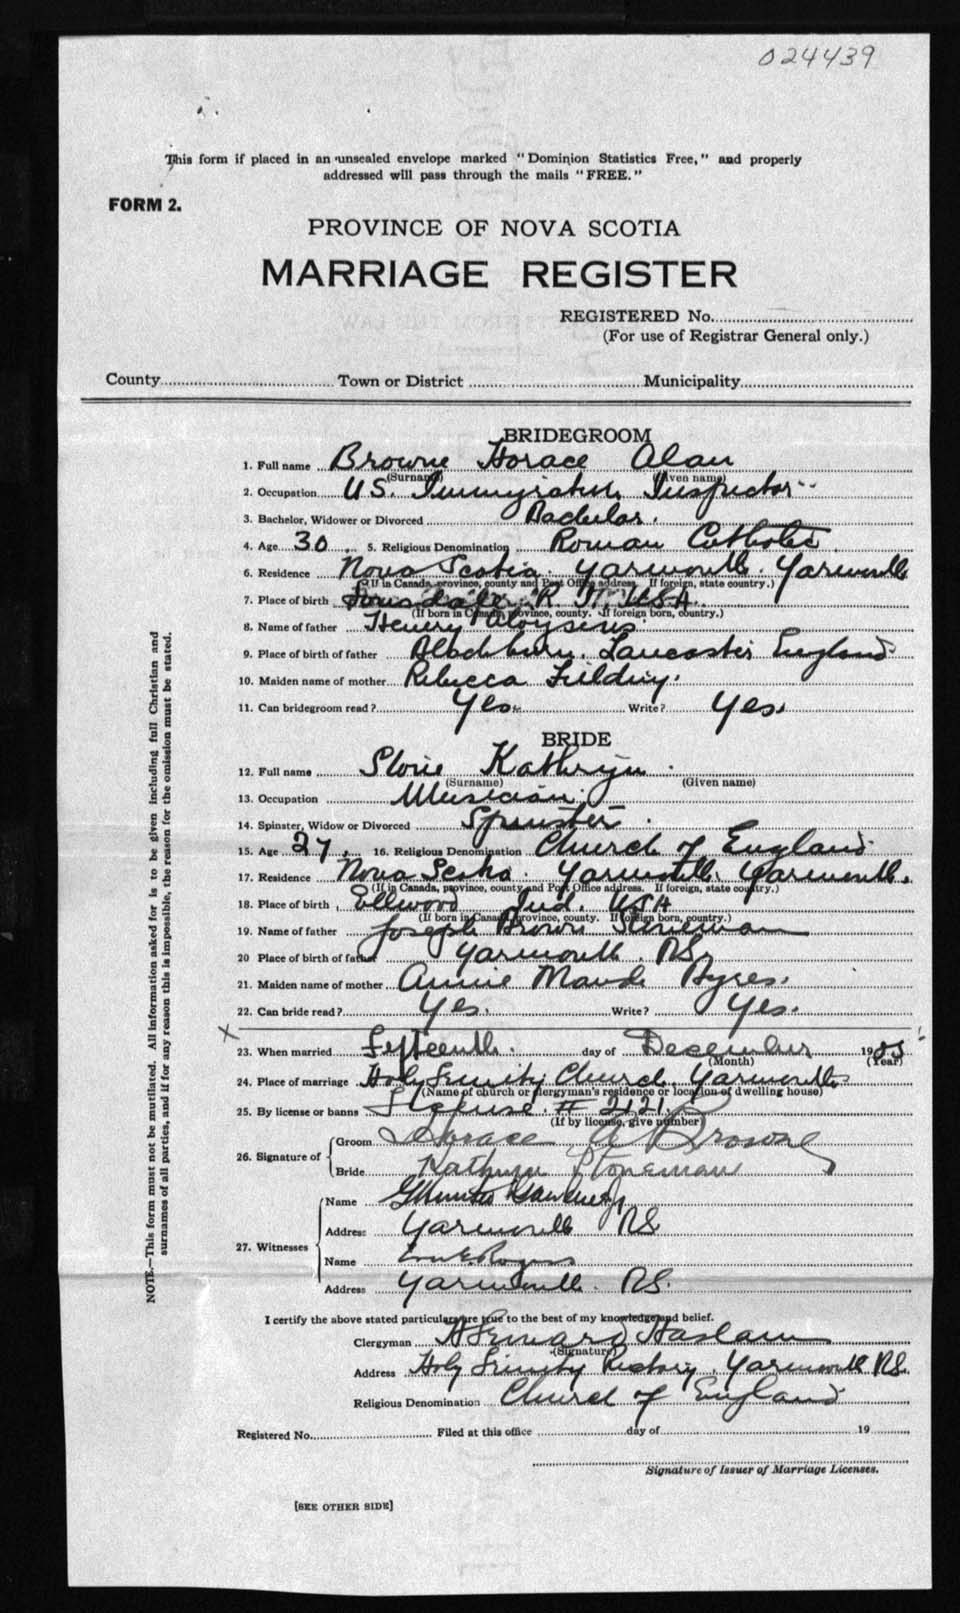 024439
This form if placed in an unsealed envelope marked "Dominion Statistics Free," and properly
addressed will pass through the mails "FREE."
FORM 2.
PROVINCE OF NOVA SCOTIA
MARRIAGE REGISTER
REGISTERED No.
(For use of Registrar General only.)
County Town or District Municipality
BRIDEGROOM
1. Full name Browne Horace Alan
(Surname) (Given name)
2. Occupation U.S. Immigration Inspector
3. Bachelor, Widower or Divorced Bachelor.
4. Age 30 5. Religious Denomination Roman Catholic
6. Residence Nova Scotia. Yarmouth. Yarmouth
(If in Canada, province, county and Post Office address. If foreign, state country.)
7. Place of birth Lonsdale R.I. USA.
(If born in Canada, province, county. If foreign born, country.)
8. Name of father Henry Aloysius
9. Place of birth of father Blackburn, Lancaster England
10. Maiden name of mother Rebecca Fielding.
11. Can bridegroom read? Yes. Write? Yes.
BRIDE
12. Full name Kathryn
(Surname) (Given name)
13. Occupation Musician.
14. Spinster, Widow or Divorced Spinster.
15. Age 27. 16. Religious Denomination Church of England
17. Residence Nova Scotia. Yarmouth. Yarmouth.
(If in Canada, province, county and Post Office address. If foreign, state country.)
18. Place of birth Ellwood Ind. USA
(If born in Canada, province, county. If foreign born, country.)
19. Name of father Joseph Brown Stoneman
20 Place of birth of father Yarmouth. NS.
21. Maiden name of mother Annie Maude
22. Can bride read? Yes. Write? Yes.
X
23. When married Fifteenth. day of December 19
(Month) (Year)
24. Place of marriage Holy Trinity Church, Yarmouth
(Name of church or clergyman's residence or location of dwelling house)
25. By license or banns License # 2121.
(If by license, give number)
26. Signature of Groom Horace A Browne
Bride Kathryn Stoneman
27. Witnesses Name
Address Yarmouth NS
Name Rogers
Address Yarmouth. NS.
I certify the above stated particulars are true to the best of my knowledge and belief.
Clergyman Haslam
(Signature)
Address Holy Trinity Rectory, Yarmouth NS.
Religious Denomination Church of England
Registered No. Filed at this office day of 19
Signature of Issuer of Marriage Licenses.
[SEE OTHER SIDE]
NOTE.—This form must not be mutilated. All information asked for is to be given including full Christian and
surnames of all parties, and if for any reason this is impossible, the reason for the omission must be stated.